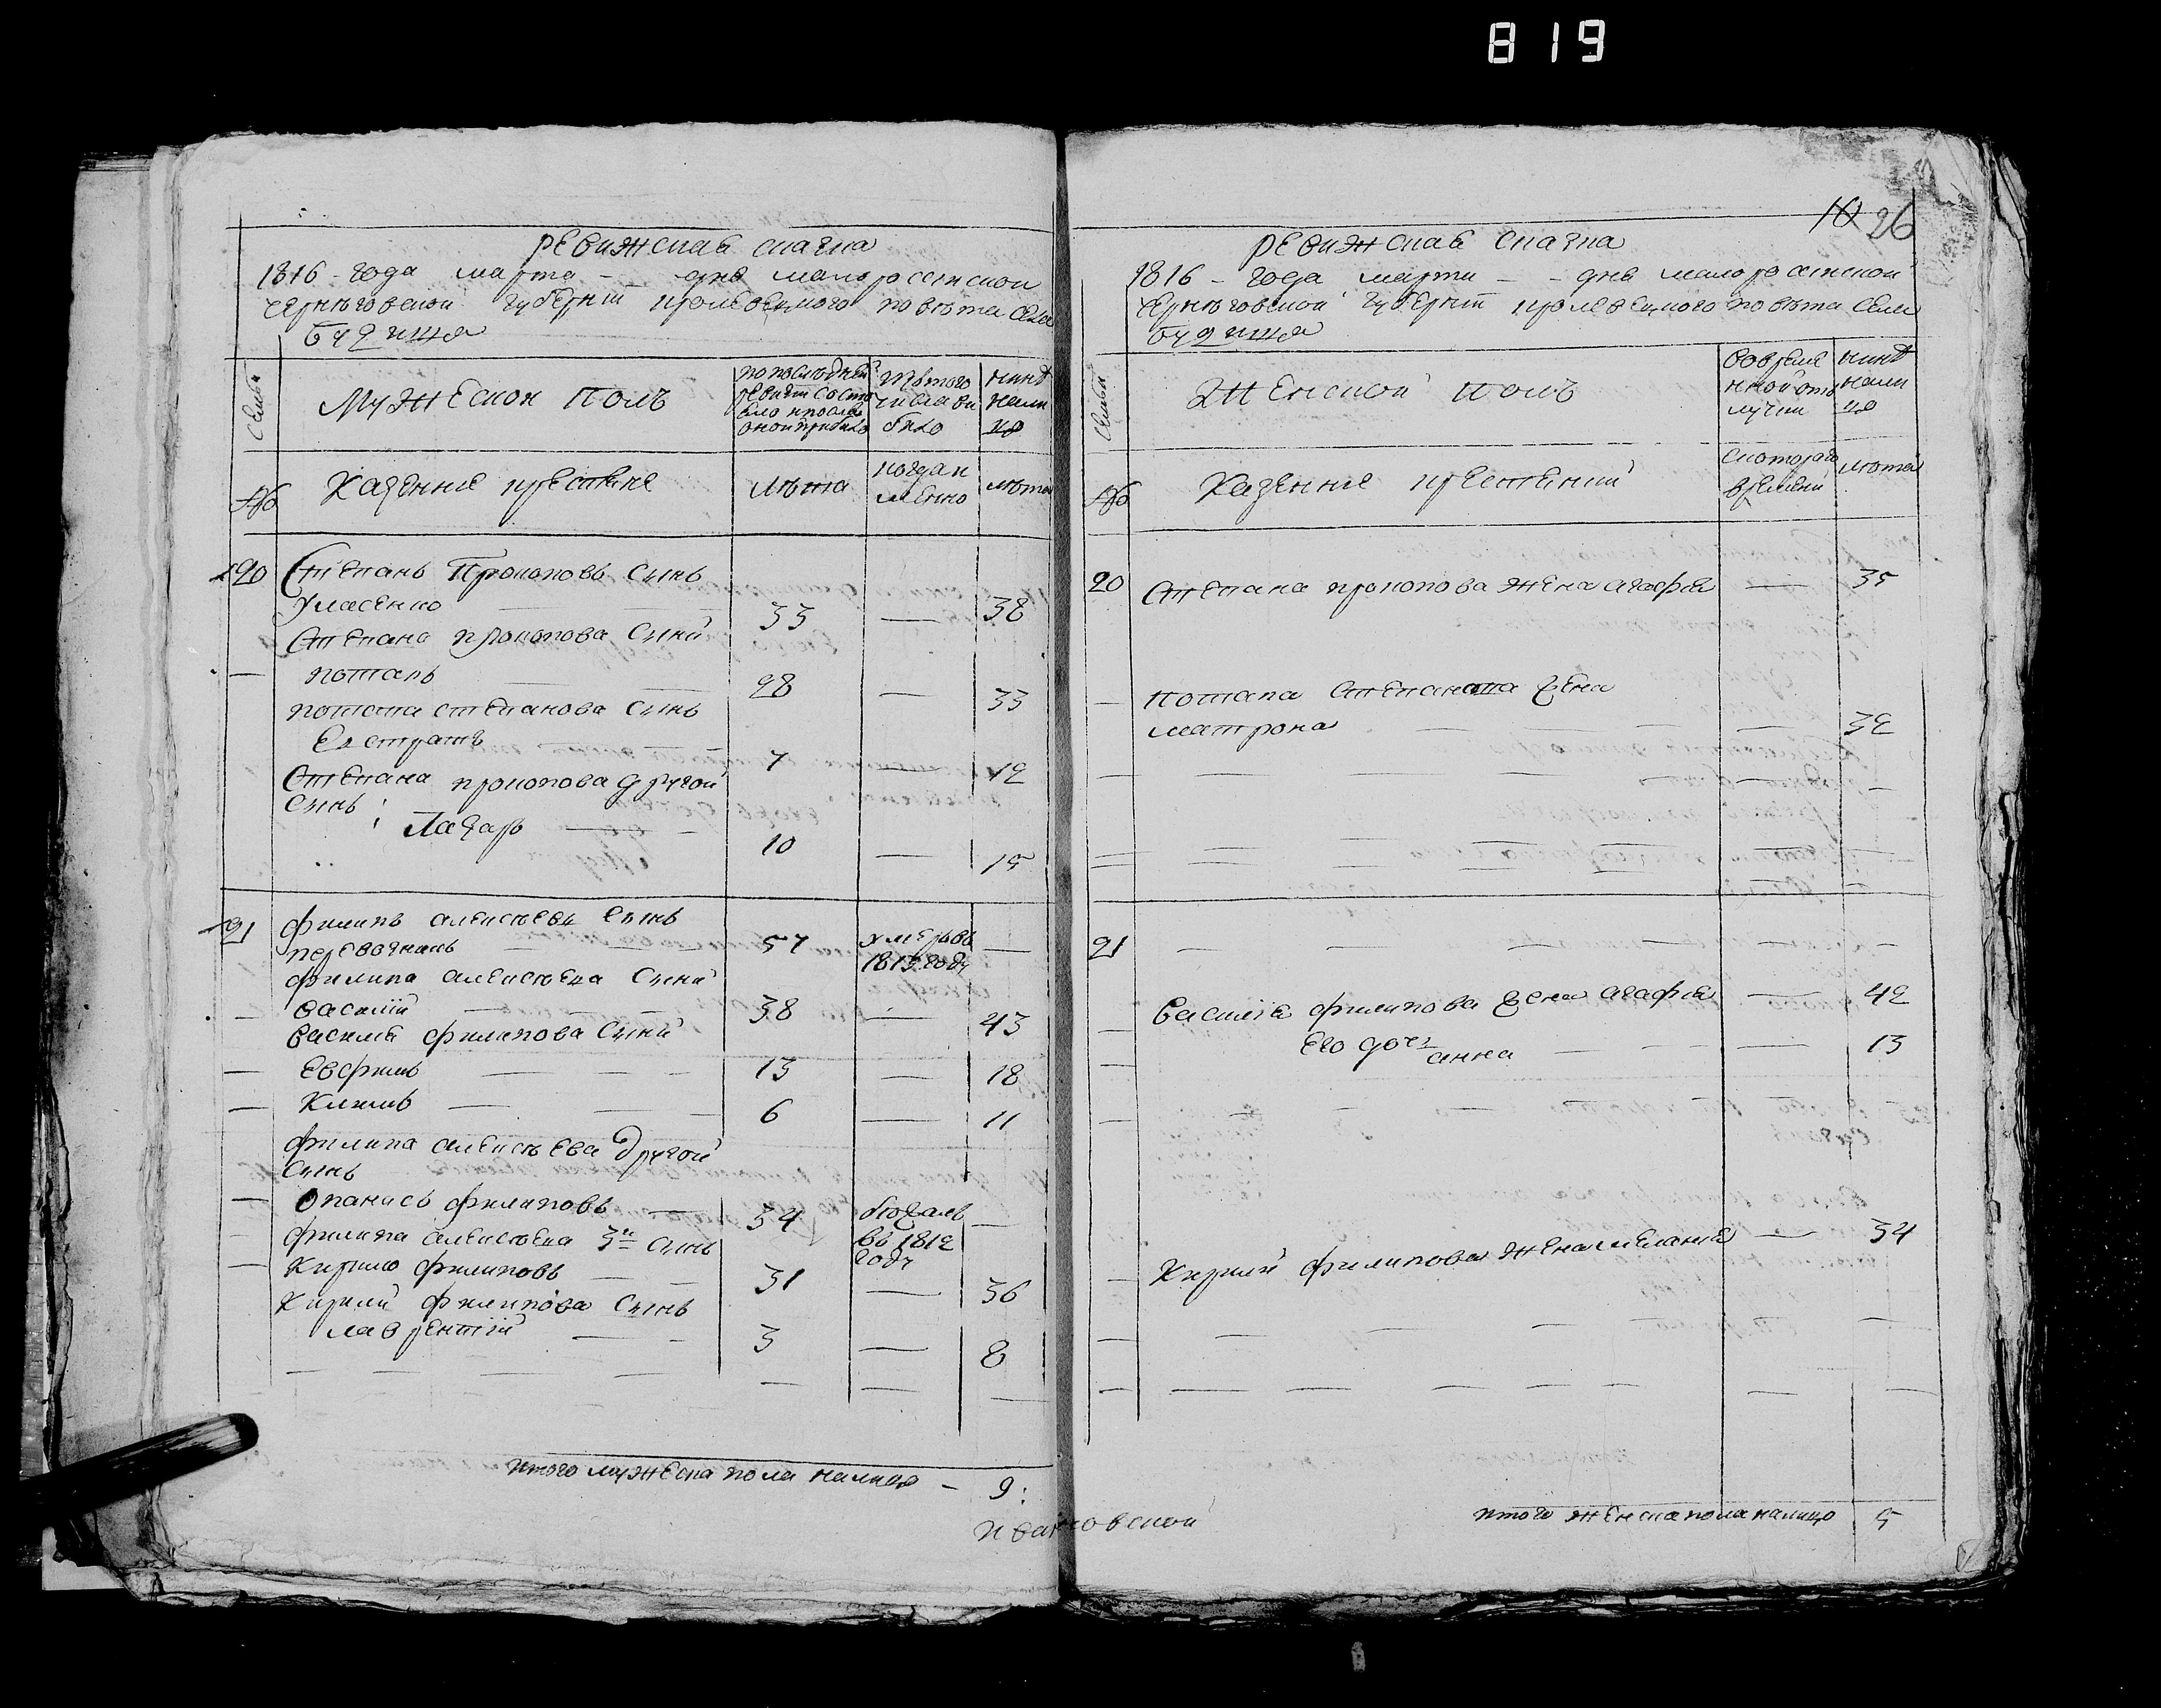 819
10 26
ревижская сказка
1816 - года марта - дня малоросейской
чернѣговской губернїи кролевецкого повѣта села
Будища
Семьи
Мужеской полъ
по последней
ревизїи состо
яло и после
оной прибыло
Изтого
числа вы
было
нинѣ
нали
цо
№
Казенние крестяне
лѣта
когда и
менно
лѣта
20
Степанъ Прокоповъ синъ
Уласенко
33
—
38
Степана прокопова синъ
потапъ
28
—
33
потапа степанова синъ
Евстратъ
7
—
12
Степана прокопова другой
синъ
Лазаръ
10
—
15
21
филипъ алексѣевъ синъ
перевознихъ
57
умеръ въ
1813 году
—
филипа алексѣева синъ
василїй
38
—
43
василя филипова синъ
Евфимъ
13
—
18
Климъ
6
—
11
филипа алексѣева другой
синъ
Опанасъ филиповъ
34
бѣжалъ
въ 1812
году
—
филипа алексѣева 3й синъ
Кирило филиповъ
31
—
36
Кирили филипова синъ
лаврентїй
3
—
8
итого мужеска пола налицо - 9:
ревижская сказка
1816 - года марта - - дня малоросейской
чернѣговской губернїи кролевецкого повѣта села
Будища
Семьи
Женской полъ
вовреме
нной отъ
лучки
нинѣ
нали
цо
№
Казенние крестянки
скоторого
времени
лѣта
20
Степана прокопова жена агафия
—
35
потапа Степанова жена
матрона
—
32
21
Василїя филипова жена агафия
—
42
Его дочъ
анна
—
13
Кирили филипова жена меланія
—
34
итого женска пола налицо 5